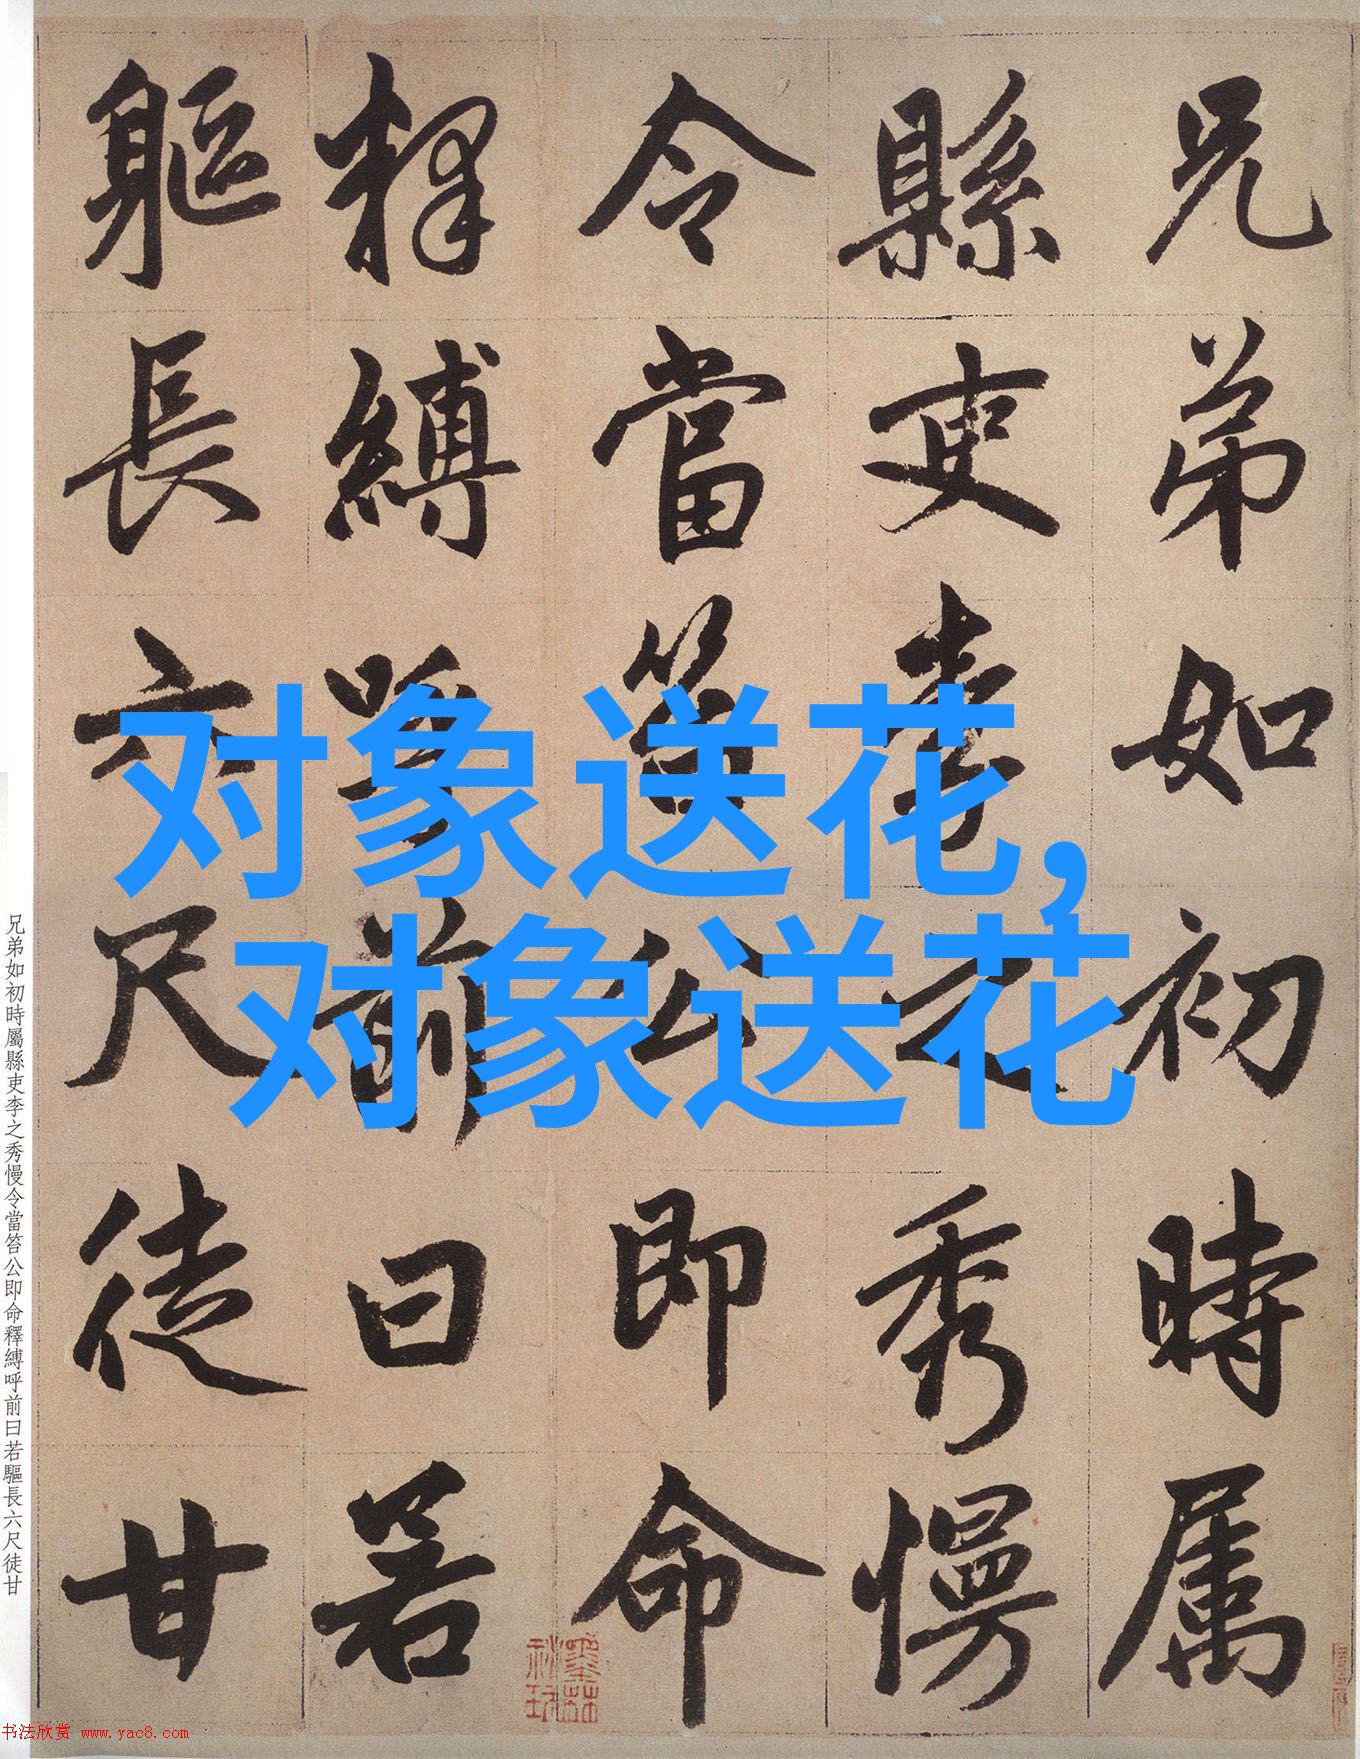 兄弟如初時属
縣吏李之秀慢
令當笞公即命
釋縛呼前曰若
軀長六尺徒甘
对象送花,
对象送花
兄弟如初時屬縣吏李之秀慢令當笞公即命釋縛呼前曰若驅長六尺徒甘
书法欣赏 www.yac8.com